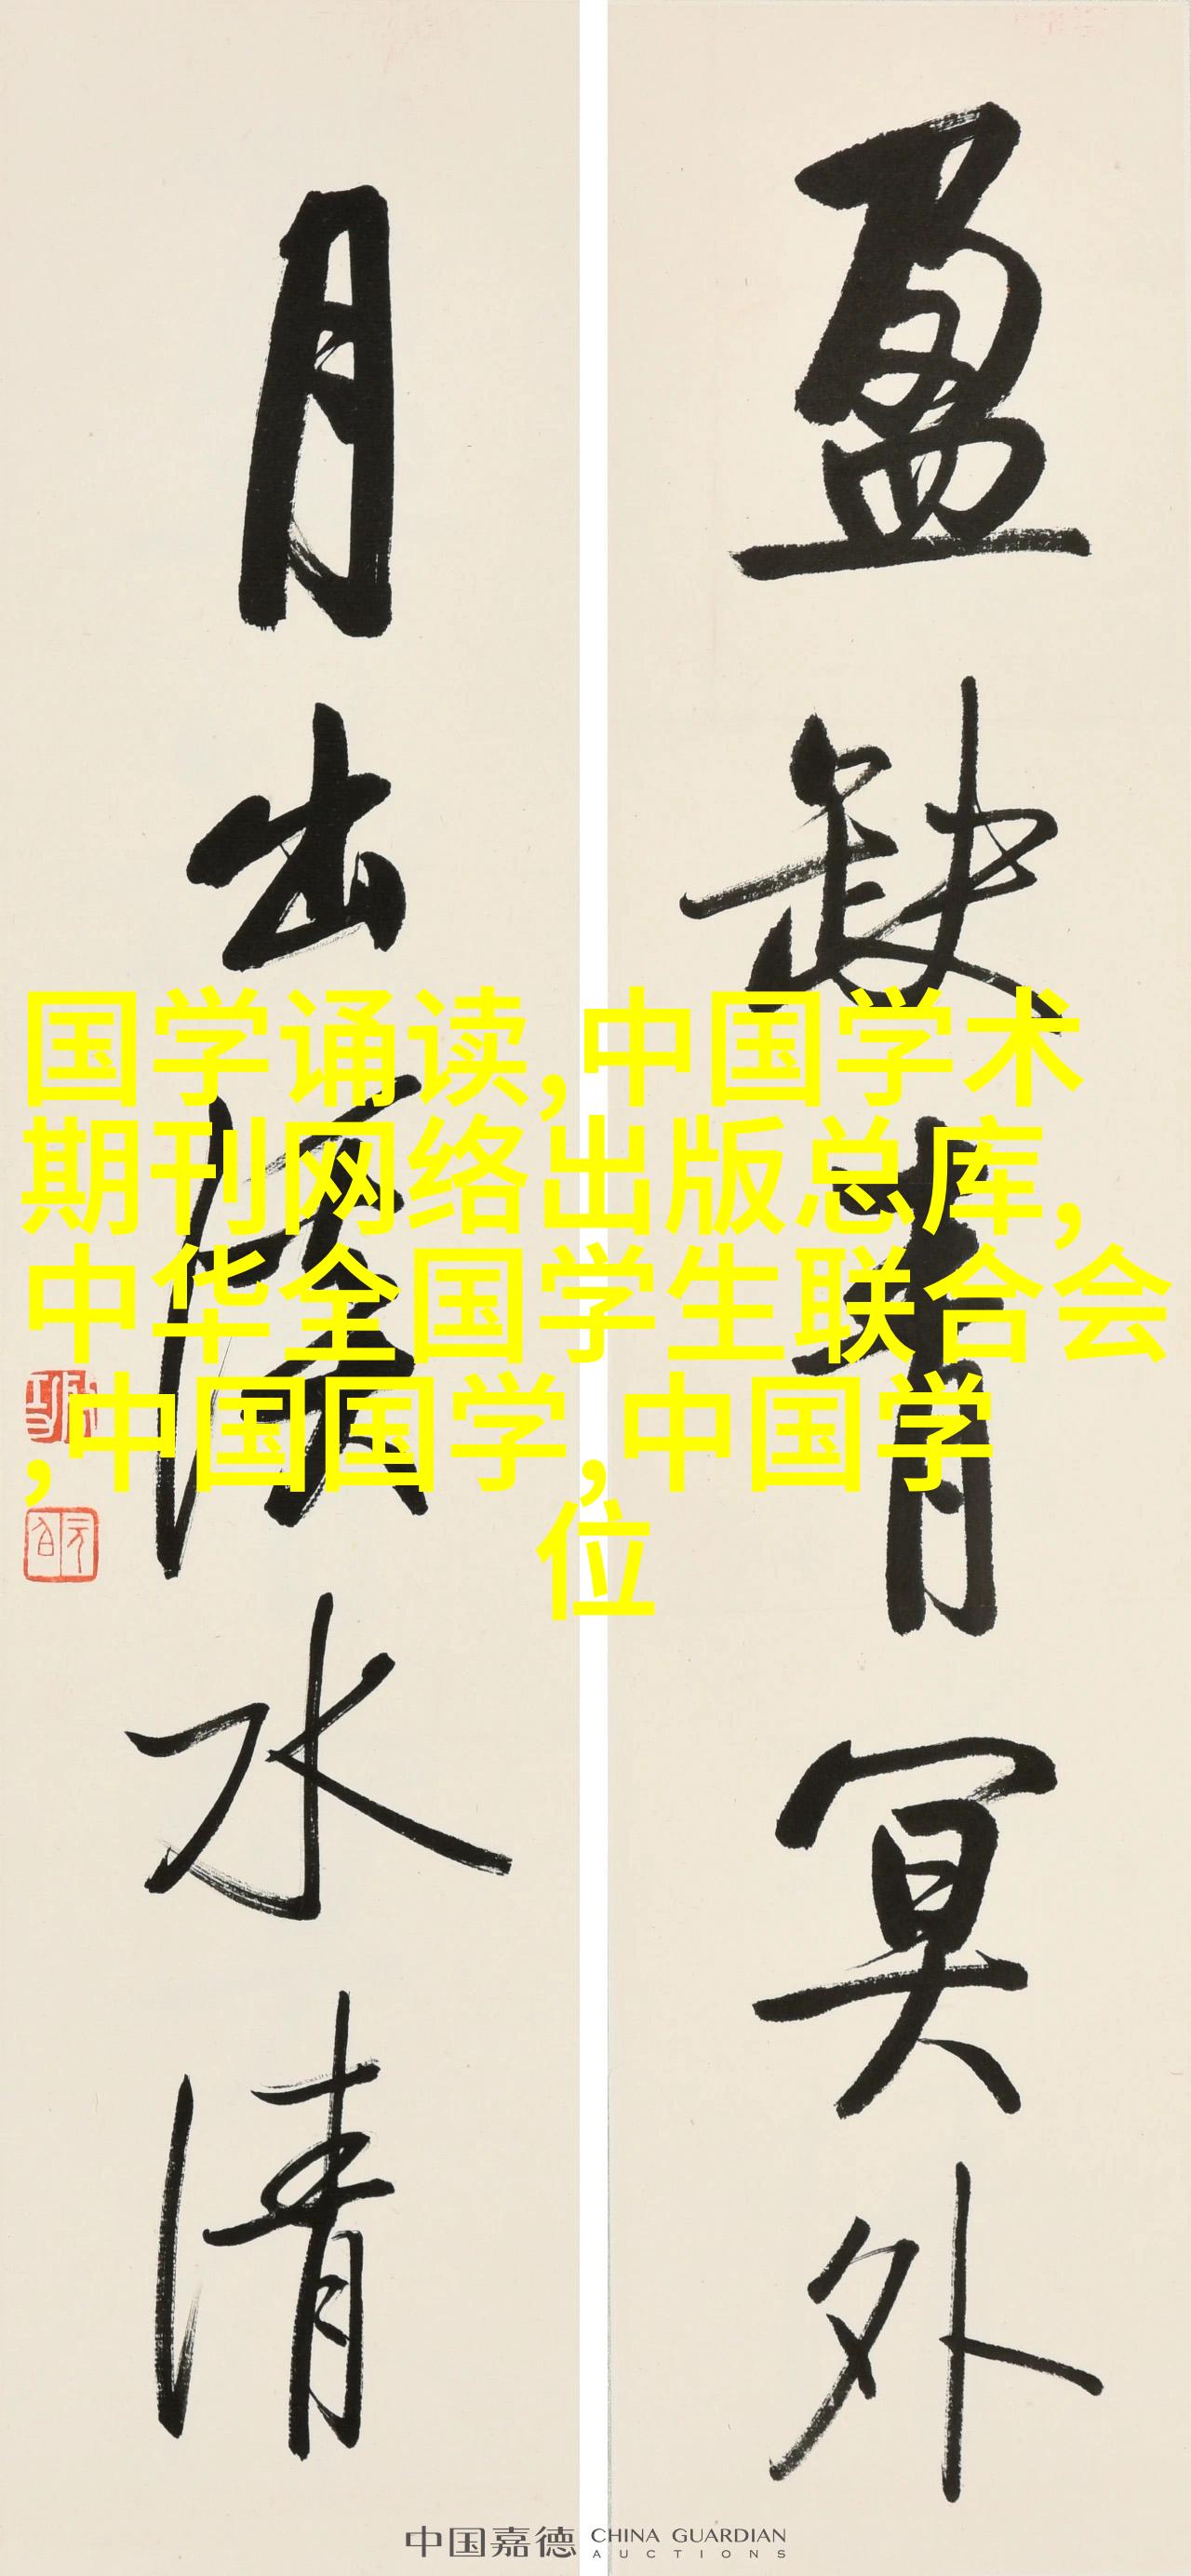 盈缺青冥外
月出 水清
国学诵读,中国学术
期刊网络出版总库,
中华全国学生联合会
,中国国学,中国学
位
中国嘉德 CHINA GUARDIAN
AUCTIONS